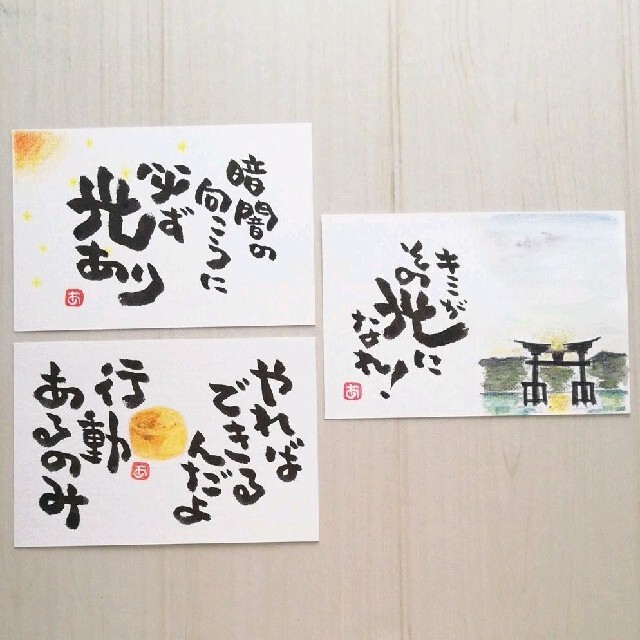 暗闇の
向こうに
必ず
光あり
あ
キミが
その光に
なれ！
あ
やれば
できる
んだよ
行動
あるのみ
あ